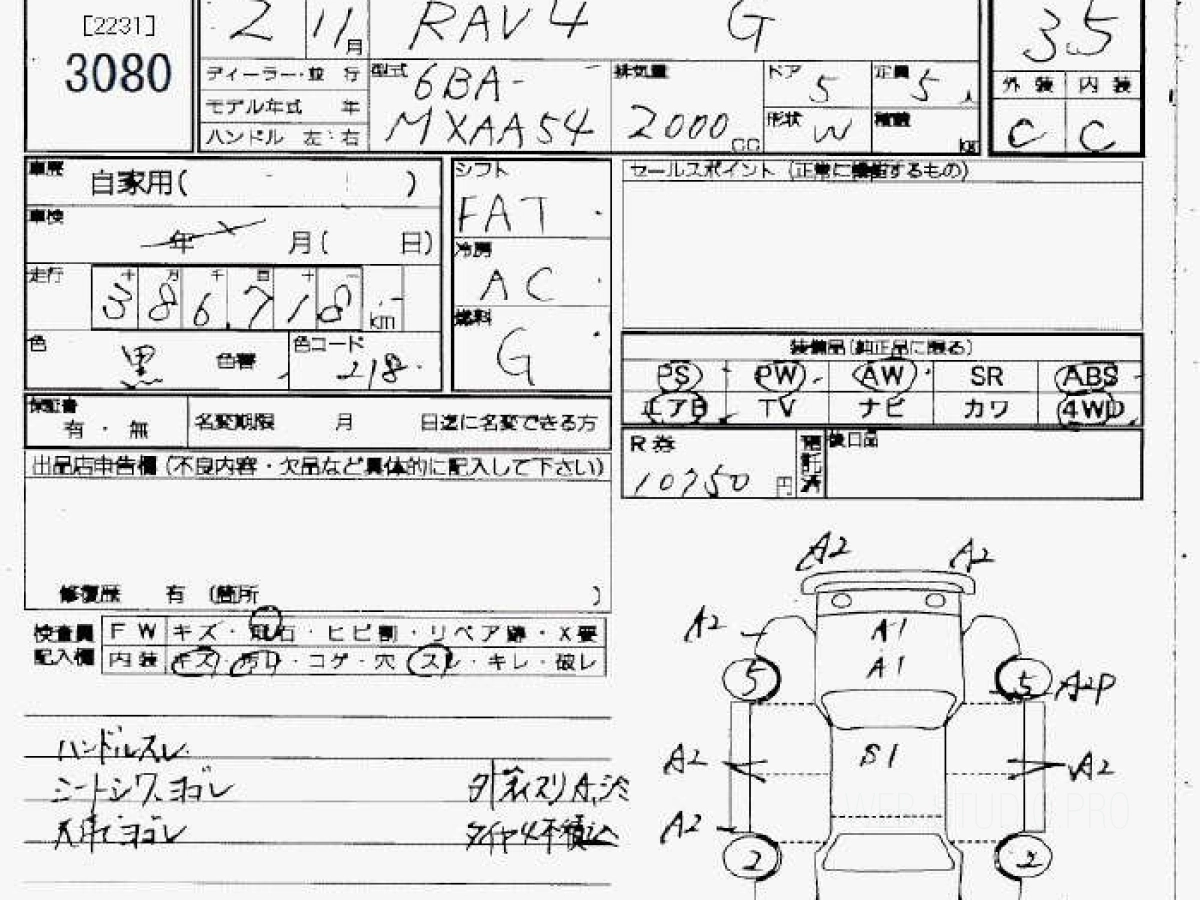 [2231]
3080
2 11月 RAV4 G 3.5
ディーラー・並行
モデル年式 年
ハンドル 左:右
型式 6BA-
MXAA54
排気量 2000cc
ドア 5 定員 5人
形状 W 積載 kg
外装 内装
C C
車歴 自家用( )
車検 年 月( 日)
走行 十 万 千 百 十 一
386,718 km
色 黒 色替 色コード 218
シフト
FAT
冷房
AC
燃料
G
セールスポイント (正常に機能するもの)
装備品(純正品に限る)
PS PW AW SR ABS
エアB TV ナビ カワ 4WD
保証書 有・無
名変期限 月 日迄に名変できる方
R券 10750円 預託済
後日品
出品店申告欄(不良内容・欠品など具体的に記入して下さい)
修復歴 有 (箇所 )
検査員記入欄
FW キズ・飛石・ヒビ割・リペア跡・X要
内装 キズ・汚レ・コゲ・穴・スレ・キレ・破レ
ハンドルスレ
シートシワ、ヨゴレ
天井ヨゴレ
タイヤ4本積込
A2 A2
A2 A1
A1
5 5 A2P
A2 S1 A2
A2
2 2
WEB STUDIO PRO